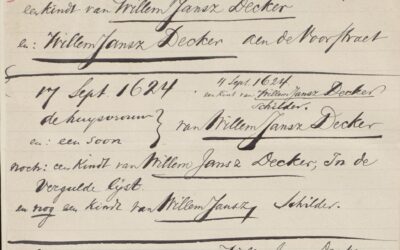 een kindt van Willem Jansz Decker
en: Willem Jansz Decker aen de Voorstraet
17 Sept. 1624
4 Sept. 1624
een kint van Willem Jansz Decker
Schilder.
de huysvrouw
en: een soon
van Willem Jansz Decker
noch: een kindt van Willem Jansz Decker, In de
Vergulde Lijst
en nog een kindt van Willem Jansz, Schilder.